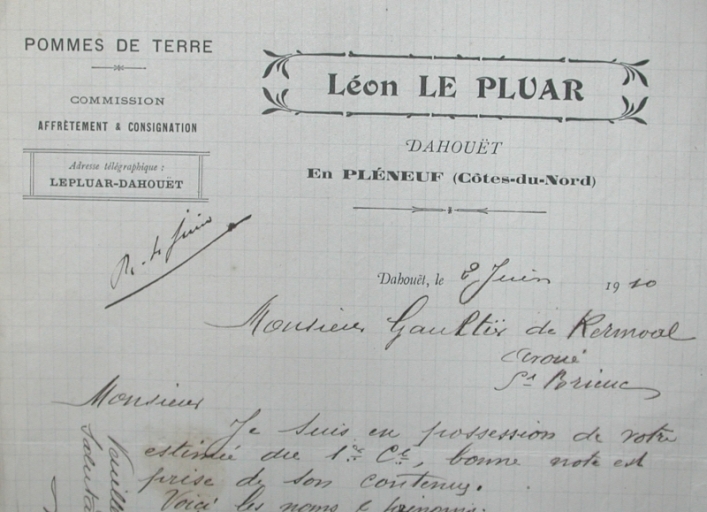 POMMES DE TERRE
COMMISSION
AFFRÈTEMENT & CONSIGNATION
Adresse télégraphique :
LEPLUAR-DAHOUËT
Léon LE PLUAR
DAHOUËT
En PLÉNEUF (Côtes-du-Nord)
R. 4 Juin
Dahouët, le 2 Juin 1910
Monsieur Gaultier de Kermoal
Avoué
St Brieuc
Monsieur
Je suis en possession de votre
estimée du 1er Ct, bonne note est
prise de son contenu.
Voici les noms & prénoms